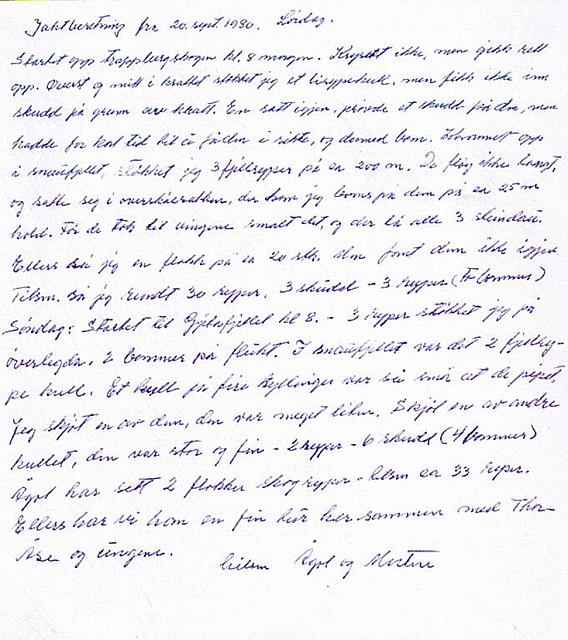 Jaktberetning fra 20. sept. 1980. Lørdag.
Startet opp trappbergskogen kl. 8 morgen. Krysset ikke, men gikk rett
opp. Øverst og midt i krattet støkket jeg et lirypekull, men fikk ikke inn
skudd på grunn av kratt. En satt igjen, prøvde et skudd på den, men
hadde for kort tid til å få den i sikte, og dermed bom. Kommet opp
i snaufjellet, støkket jeg 3 fjellryper på ca 200 m. De fløy ikke langt,
og satte seg i, der kom jeg på dem på ca 25 m
hold. Før de tok til vingene smalt det, og der lå alle 3 steindau.
Ellers så jeg en flokk på ca 20 stk. men fant dem ikke igjen
Tilsm. så jeg rundt 30 ryper. 3 skudd - 3 ryper (To bommer)
Søndag: Startet til kl 8. - 3 ryper støkket jeg på
2 bommer på flukt. I snaufjellet var det 2 fjellry-
pe kull. Et kull på fire kyllinger var så små at de pepet.
Jeg skjøt en av dem, den var meget liten. Skjøt en av andre
kullet, den var stor og fin - 2 ryper - 6 skudd (4 bommer)
har sett 2 flokker skogryper - tilsm ca 33 ryper.
Ellers har vi hatt en fin tur her sammen med Thor
Åse og ungene.
hilsen og